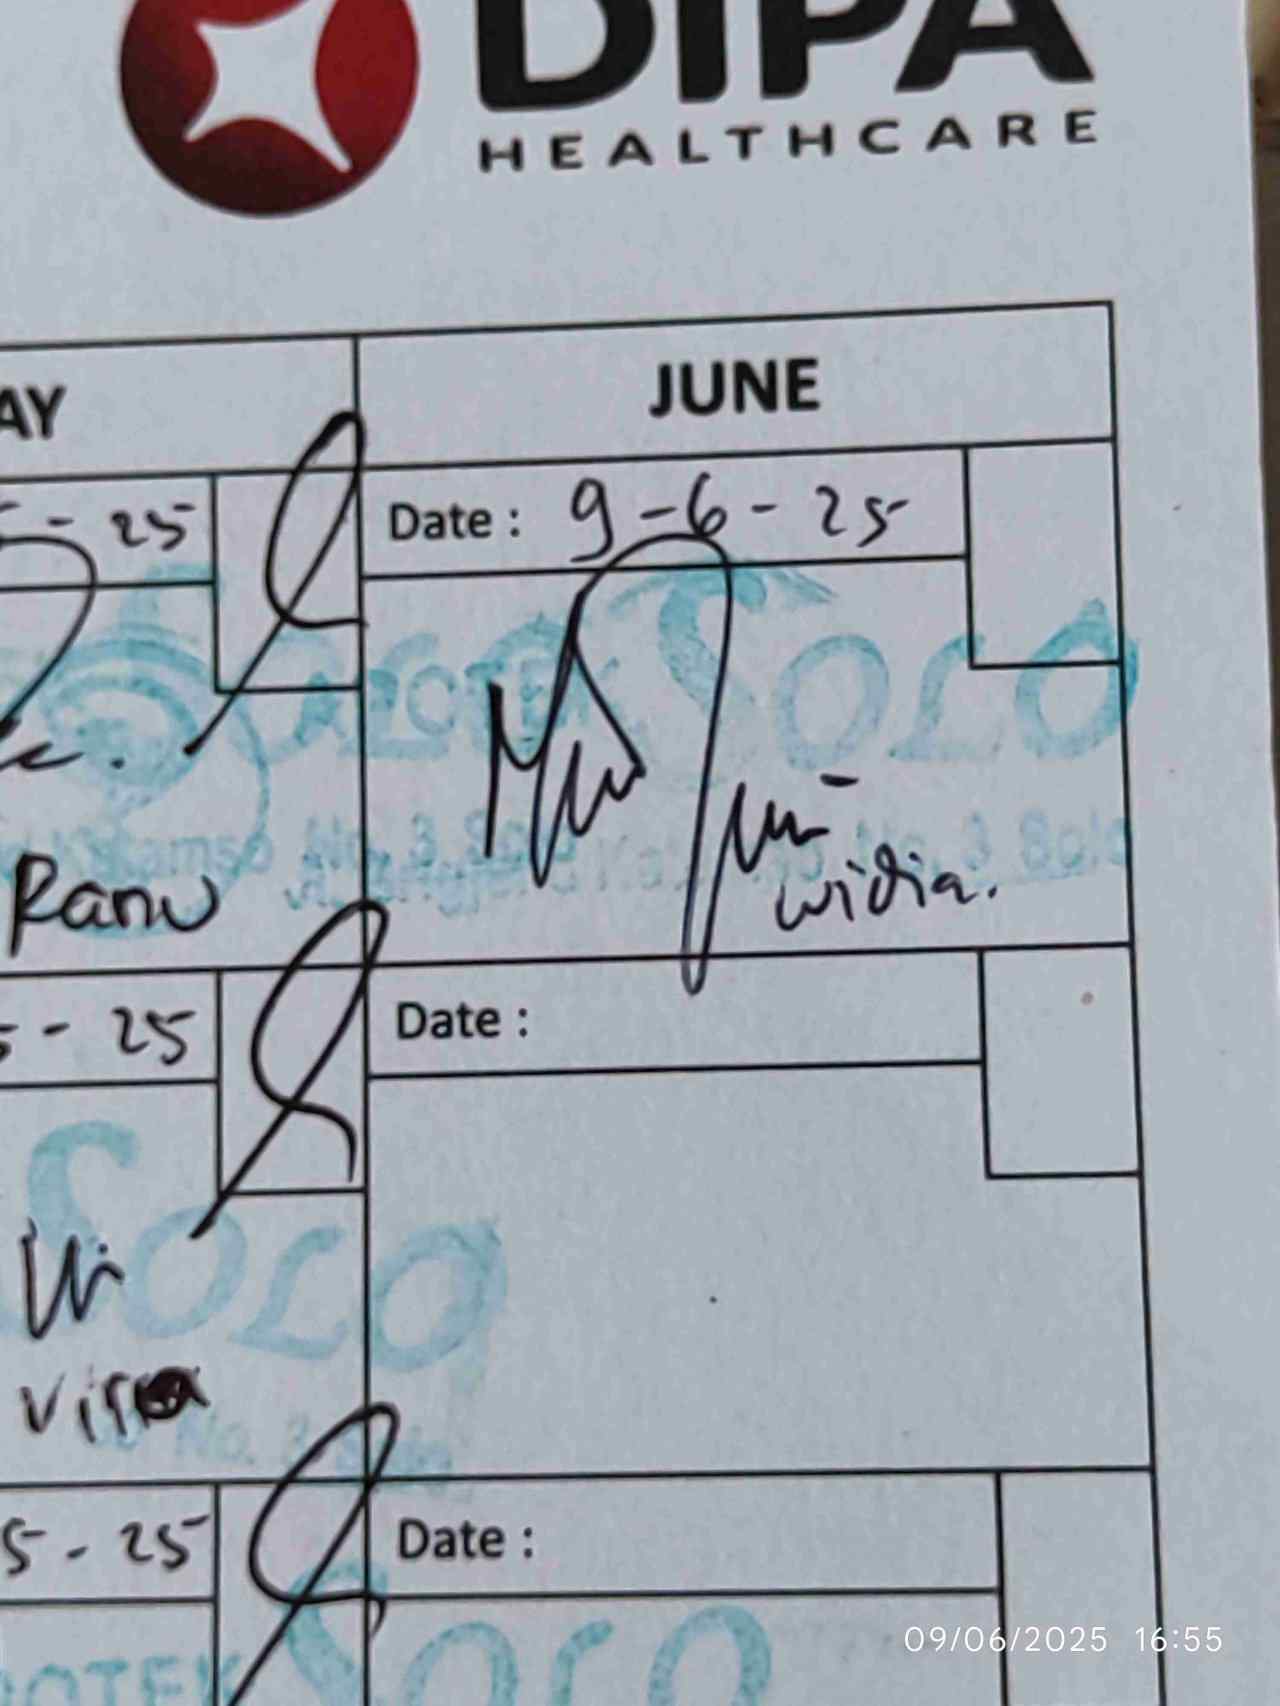 DIPA
HEALTHCARE
AY
JUNE
5-25
Date : 9-6-25
SOLO
No. 3 Solo
Ranu
widia.
5-25
Date :
SOLO
No. 3 Solo
5-25
Date :
APOTEK SOLO
09/06/2025 16:55